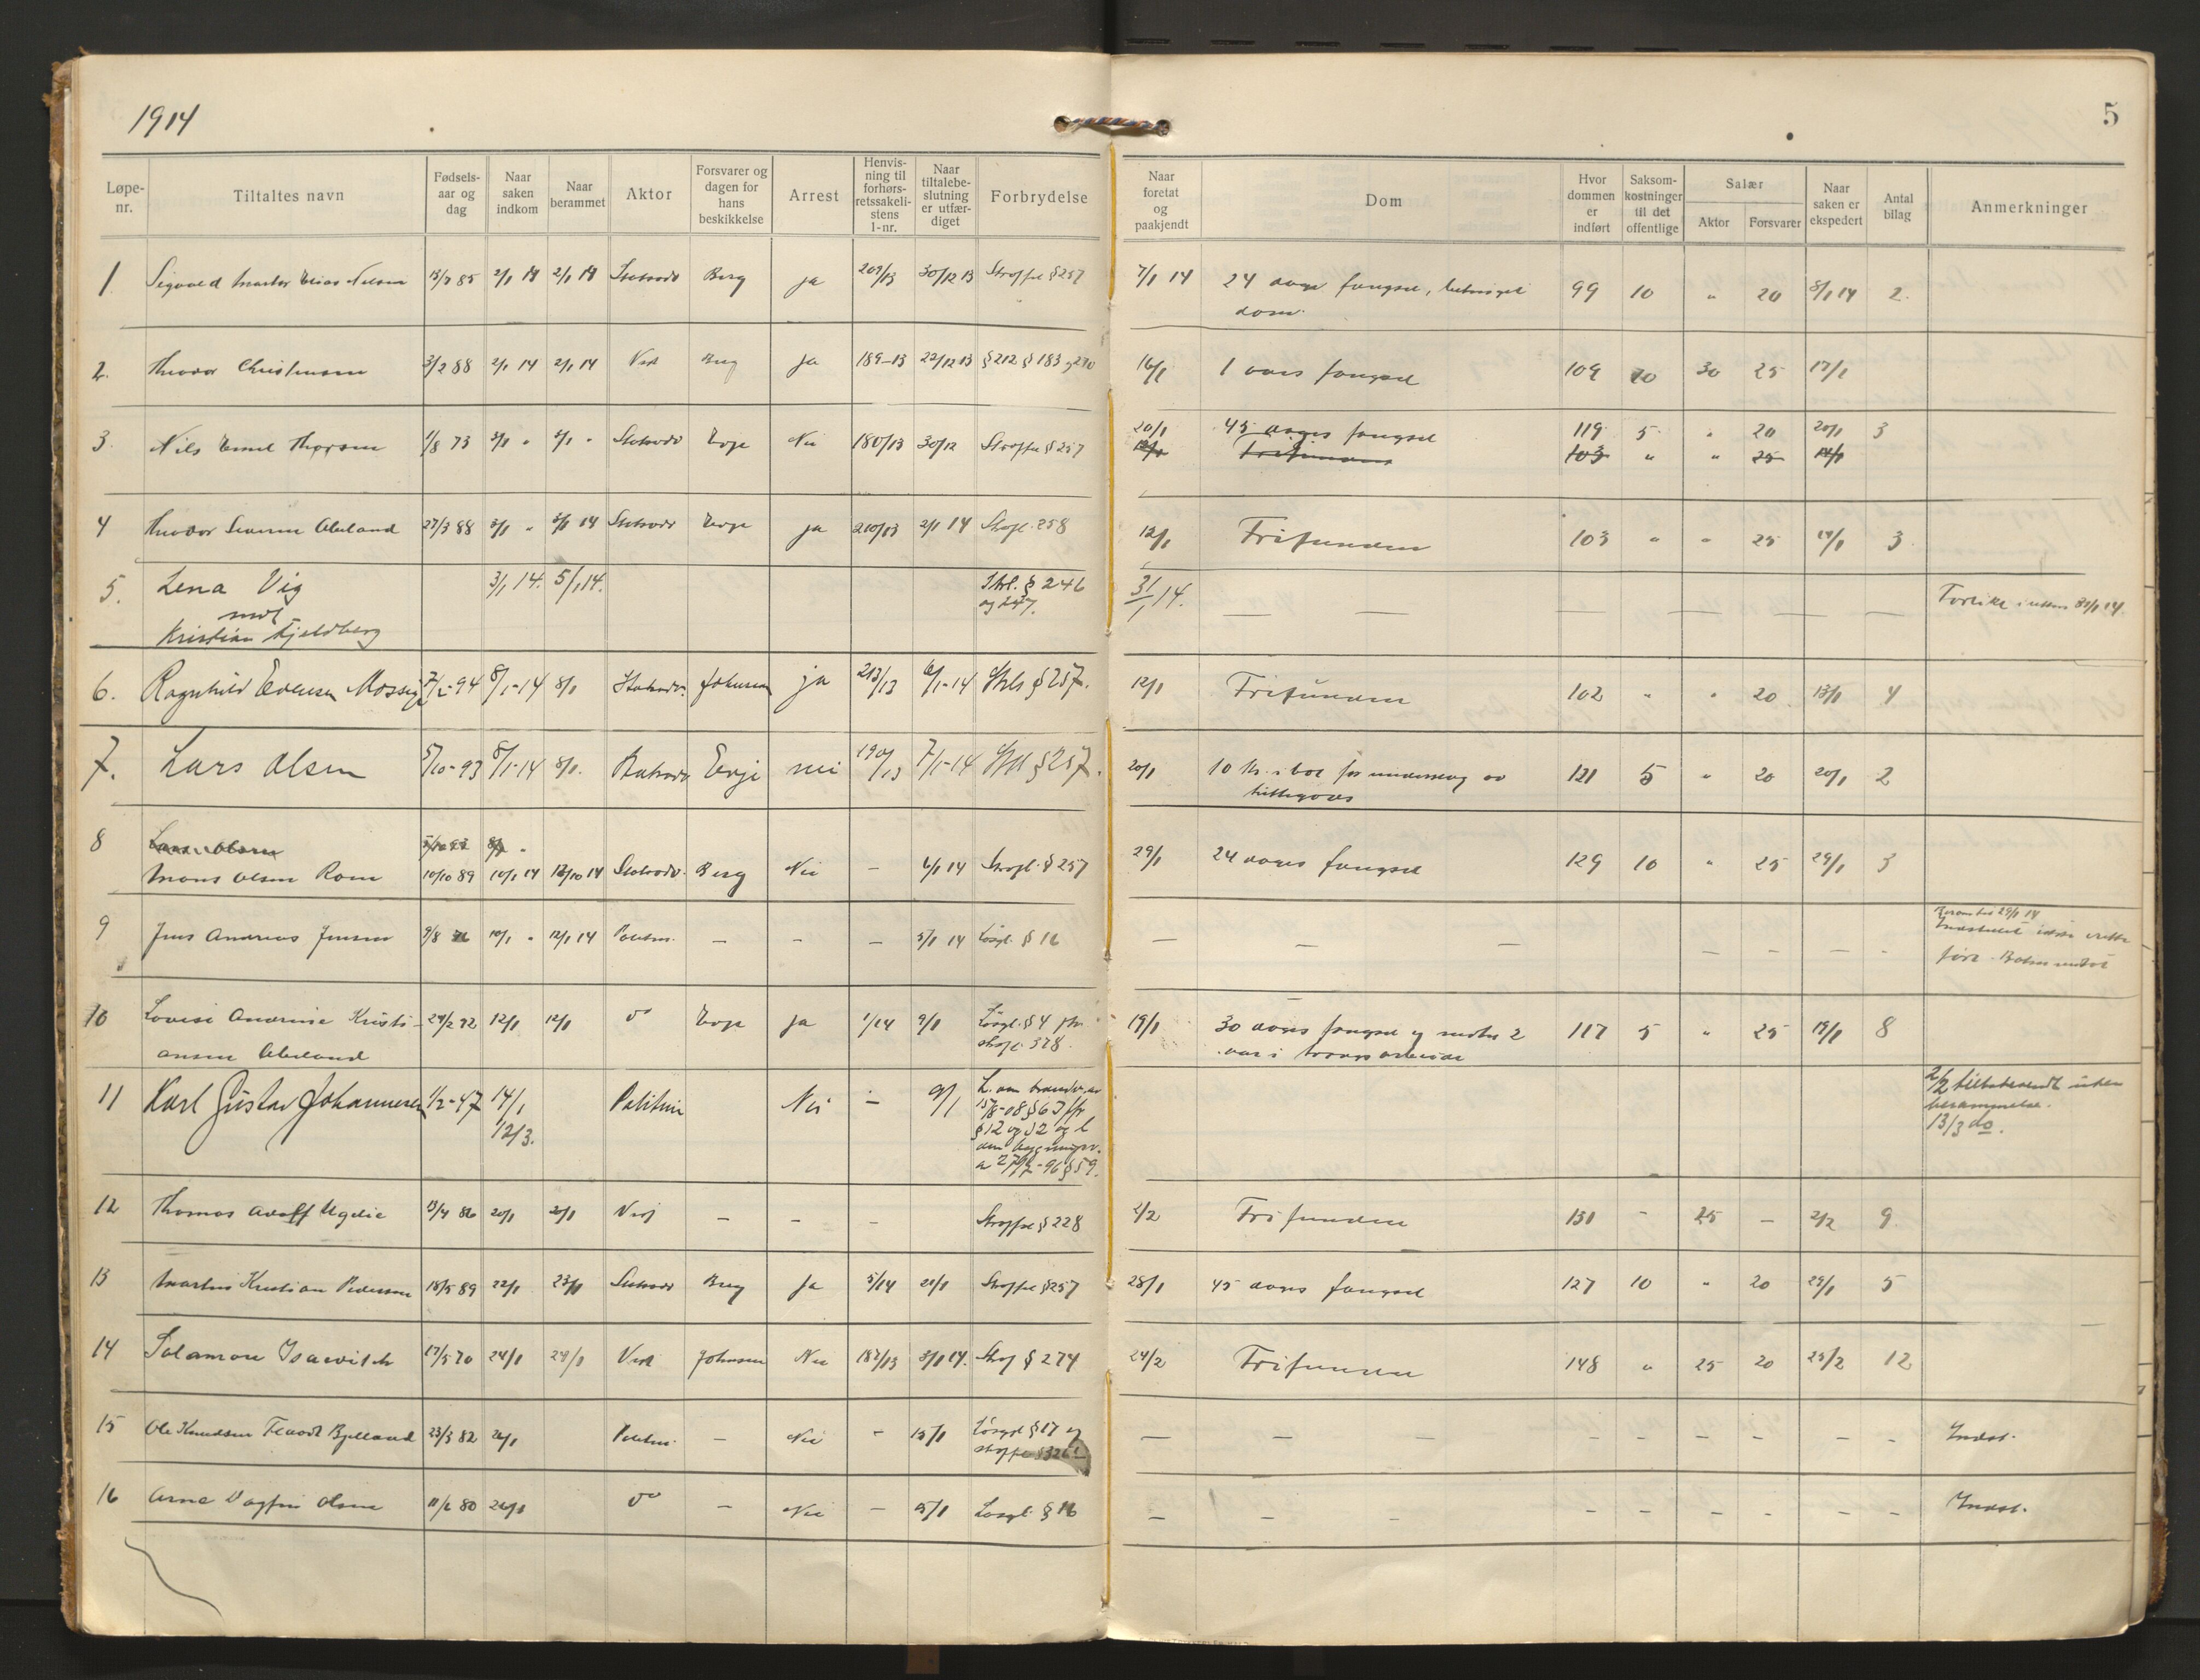 1914
5
Løpe-nr. Tiltaltes navn Fødsels-aar og dag Naar saken indkom Naar berammet Aktor Forsvarer og dagen for hans beskikkelse Arrest Henvis-ning til forhørs-retssakeli-stens l-nr. Naar tiltalebe-slutning er utfær-diget Forbrydelse Naar foretat og paakjendt Dom Hvor dommen er indført Saksom-kostninger til det offentlige Salær Aktor Forsvarer Naar saken er ekspedert Antal bilag Anmerkninger
1. Sigvald Martin Elias Nilsen 13/7 85 2/1 14 2/1 14 Berg ja 209/13 30/12 13 Straffel § 257 7/1 14 24 dages fængsel, betinget 99 10 " 20 8/1 14 2.
dom.
2. Theodor Christensen 3/2 88 2/1 14 2/1 14 Berg ja 189-13 22/12 13 § 212 § 183 og 270 16/1 1 aars fængsel 109 10 30 25 17/1
3. Nils Emil Thorsen 1/8 73 3/1 " 3/1 " Evje Nei 180/13 30/12 Straffel § 257 20/1 45 dages fængsel 119 5 " 20 20/1 3
12/1 Frifunden 103 " " 25 14/1
4 Theodor Severin Abeland 27/3 88 3/1 " 3/1 14 Evje ja 210/13 2/1 14 Strafl. 258 12/1 Frifunden 103 " " 25 14/1 3
5. Lena Vig 3/1 14. 5/1 14. Strl. § 246 31/1 14. — — Forlikt i retten 31/1 14.
mot og 247.
Kristian Fjeldberg
6. Ragnhild Evensen Mossige 7/2-94 8/1-14 8/1 Johnsen ja 213/13 6/1-14 Strls § 257. 12/1 Frifunden 102 " " 20 13/1 4
7. Lars Olsen 5/10-93 8/1-14 8/1. Evje nei 190/13 7/1-14 Strl § 257. 20/1 10 kr. i bot for underslag av 121 5 " 20 20/1 2
hittegods
8 Lars Olsen 5/10 93 8/1 "
Mons Olsen Rom 10/10 89 10/1 14 Berg Nei – 6/1 14 Strafl. § 257 29/1 24 dages fængsel 129 10 " 25 29/1 3
9 Jens Andreas Jensen 9/8 10/1 " 12/1 14 Politim. – – – 5/1 14 Løsgl. § 16 — — —
10 Lovise Andrine Kristi- 24/2 92 12/1 12/1 do Evje ja 1/14 9/1 Løsgl. § 4 jfr. 19/1 30 dages fængsel og indtil 2 117 5 " 25 19/1 8
ansen Abeland strafl. 378. aar i tvangsarbeide
11 Karl Gustav Johannesen 1/2-47 14/1 Politim Nei – 9/1 L. om brandv. av 2/2 tilbakesendt uten
12/3. 15/8-08 § 63 jfr berammelse.
§ 12 og 32 og l 13/3 do.
om bygningsv.
a 27/6-96 § 59.
12 Thomas Adolf Ugelie 13/4 86 20/1 21/1 – – – Straffel § 228 2/2 Frifunden 131 – 25 – 2/2 9
13 Martin Kristian Pedersen 18/5 89 22/1 23/1 Berg ja 5/14 21/1 Straffel § 257 28/1 45 dages fængsel 127 10 " 20 29/1 5
14 Salamon Isacvitch 17/5 70 24/1 24/1 Johnsen Nei 182/13 3/1 14. Straf § 274 24/2 Frifunden 148 " 25 20 25/2 12
15 Ole Knudsen Bjelland 23/3 82 26/1 Politim. – Nei – 15/1 Løsgl § 17 og — Indst.
straffel § 326
16 Arne Dagfin Olsen 11/6 80 26/1 do – Nei – 5/1 Løsgl. § 16 — Indst.